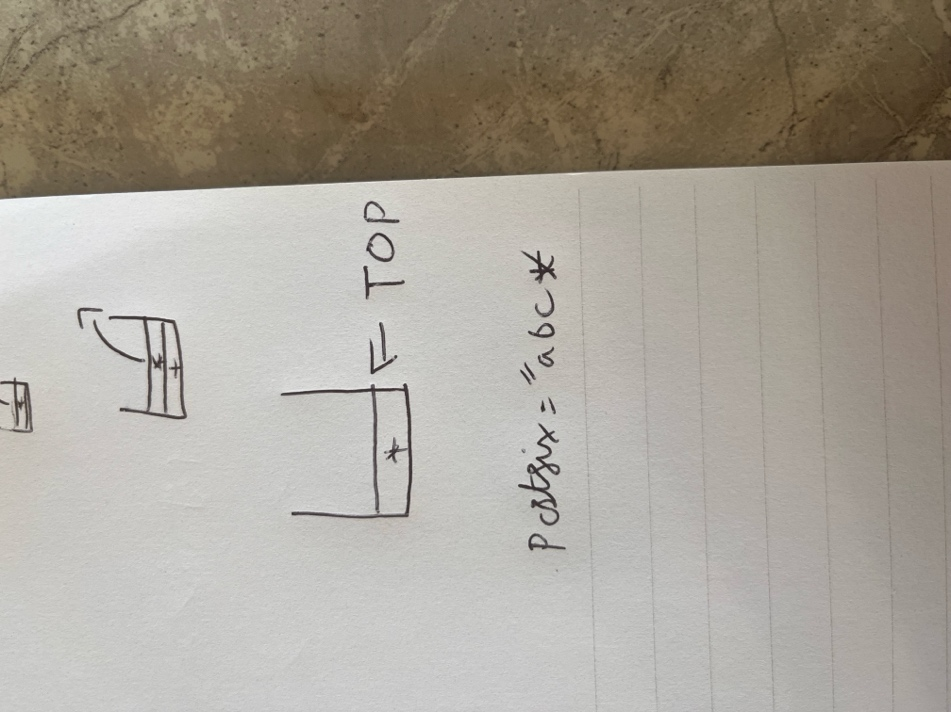 *
+
+ ← TOP
Postfix = "abc*